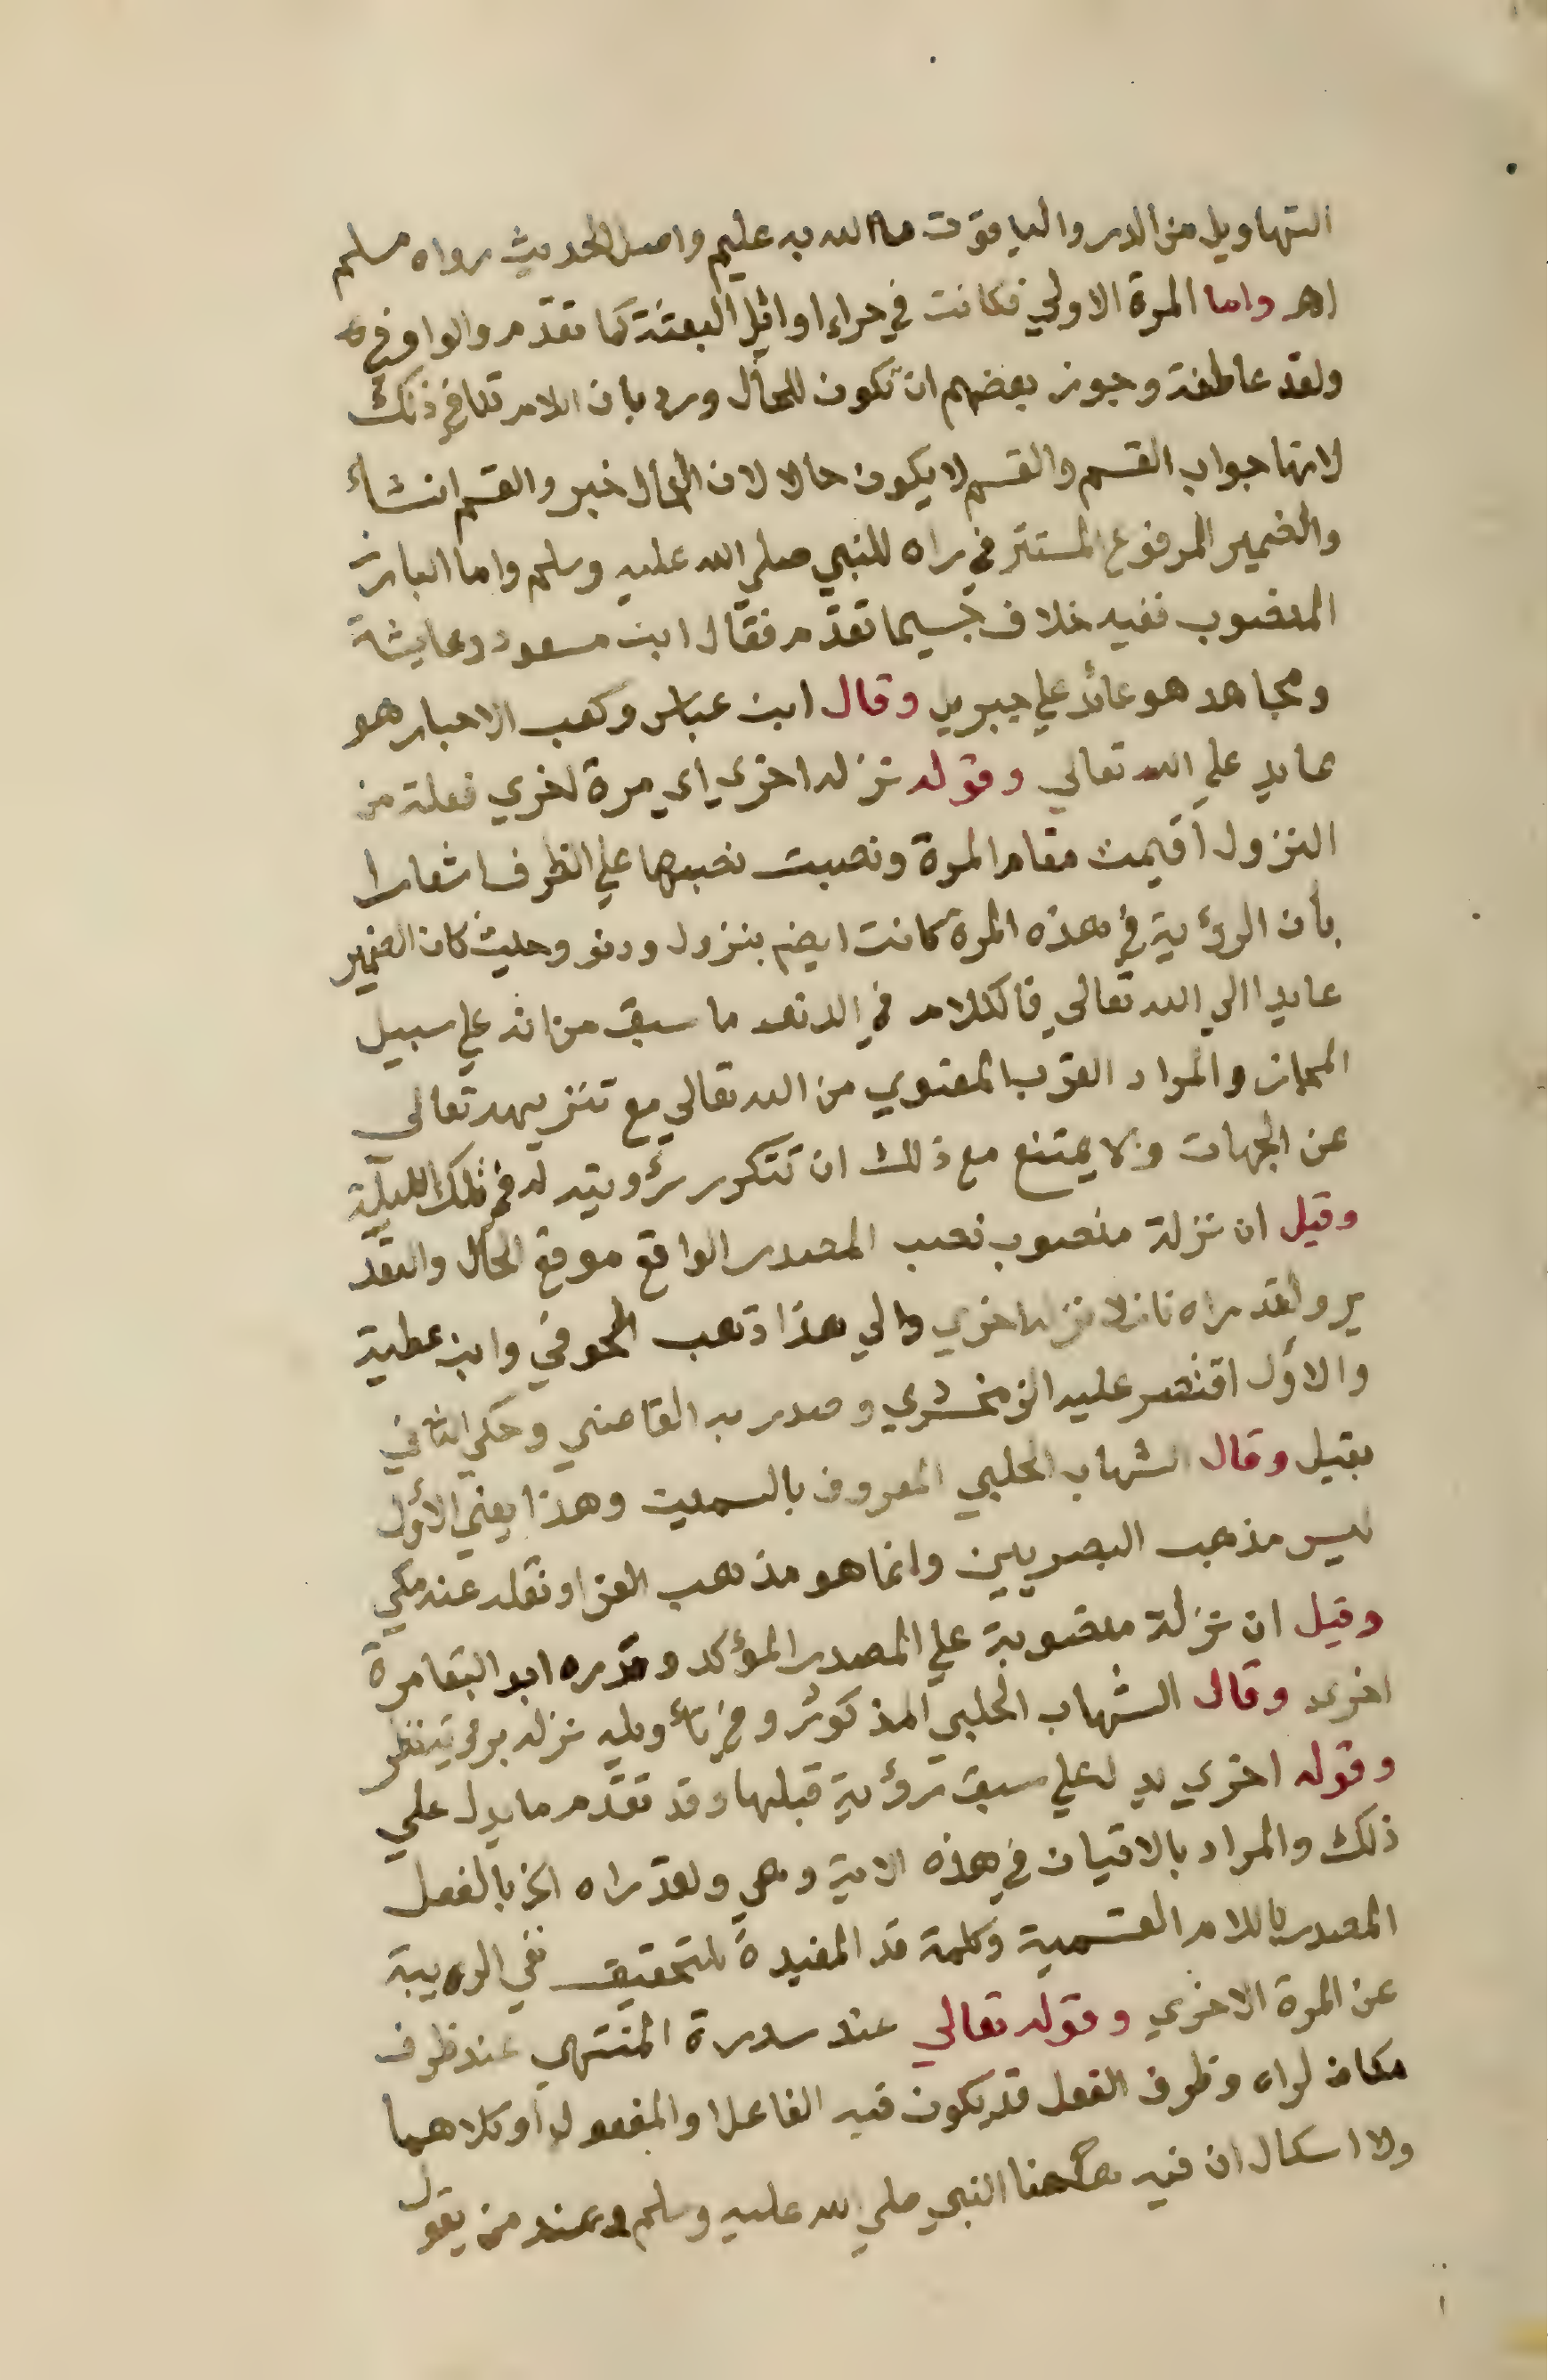 التهاويل من الدر والياقوت ما الله به عليم واصل الحديث رواه مسلم
اهـ واما المرة الاولي فكانت في حراء اوائل البعثة كما تقدم والواو في
ولقد عاطفة وجوز بعضهم ان تكون للحال ورد بان اللام تنافي ذلك
لانها جواب القسم والقسم لا يكون حالا لان الحال خبر والقسم انشاء
والضمير المرفوع المستتر في راه للنبي صلي الله عليه وسلم واما البارز
المنصوب ففيه خلاف حسيما تقدم فقال ابن مسعود وعايشة
ومجاهد هو عائد علي جبريل وقال ابن عباس وكعب الاحبار هو
عايد علي الله تعالي وقوله نزله اخري اي مرة اخري فعلة من
النزول اقيمت مقام المرة ونصبت نصبها علي الظرف اشعارا
بأن الرؤية في هذه المرة كانت ايضم بنزول ودنو وحيث كان الضمير
عايدا الي الله تعالي فالكلام في الدنو ما سبق من انه علي سبيل
المجاز والمراد القرب المعنوي من الله تعالي مع تنزيهه تعالي
عن الجهات ولا يمتنع مع ذلك ان تتكرر رؤويته له في تلك الليلة
وقيل ان نزلة منصوب نصب المصدر الواقع موقع الحال والتقد
ير ولقد راه نازلا نزله اخري والي هذا ذهب الحوفي وابن عطية
والاول اقتصر عليه الزمخشري وصدر به القاضي وحكي الثاني
بقيل وقال الشهاب الحلبي المعروف بالسمين وهذا يعني الأول
ليس مذهب البصريين وانما هو مذهب الفرا ونقله عنه مكي
وقيل ان نزلة منصوبة علي المصدر المؤكد وقدره ابو البقا مرة
اخري وقال الشهاب الحلبي المذكور وفي تأويله نزله برؤية نظر
وقوله اخري يدل علي سبق رؤية قبلها وقد تقدم ما يدل علي
ذلك والمراد بالاتيان في هذه الاية وهي ولقد راه الخ بالفعل
المصدر باللام القسمية وكلمة قد المفيدة للتحقيق نفي الريبة
عن المرة الاخري وقوله تعالي عند سدرة المنتهي عند ظرف
مكان لراه وظرف الفعل قد يكون فيه الفاعل او المفعول او كلاهما
ولا اسكال ان فيه ههنا النبي صلي الله عليه وسلم وعند من يقول